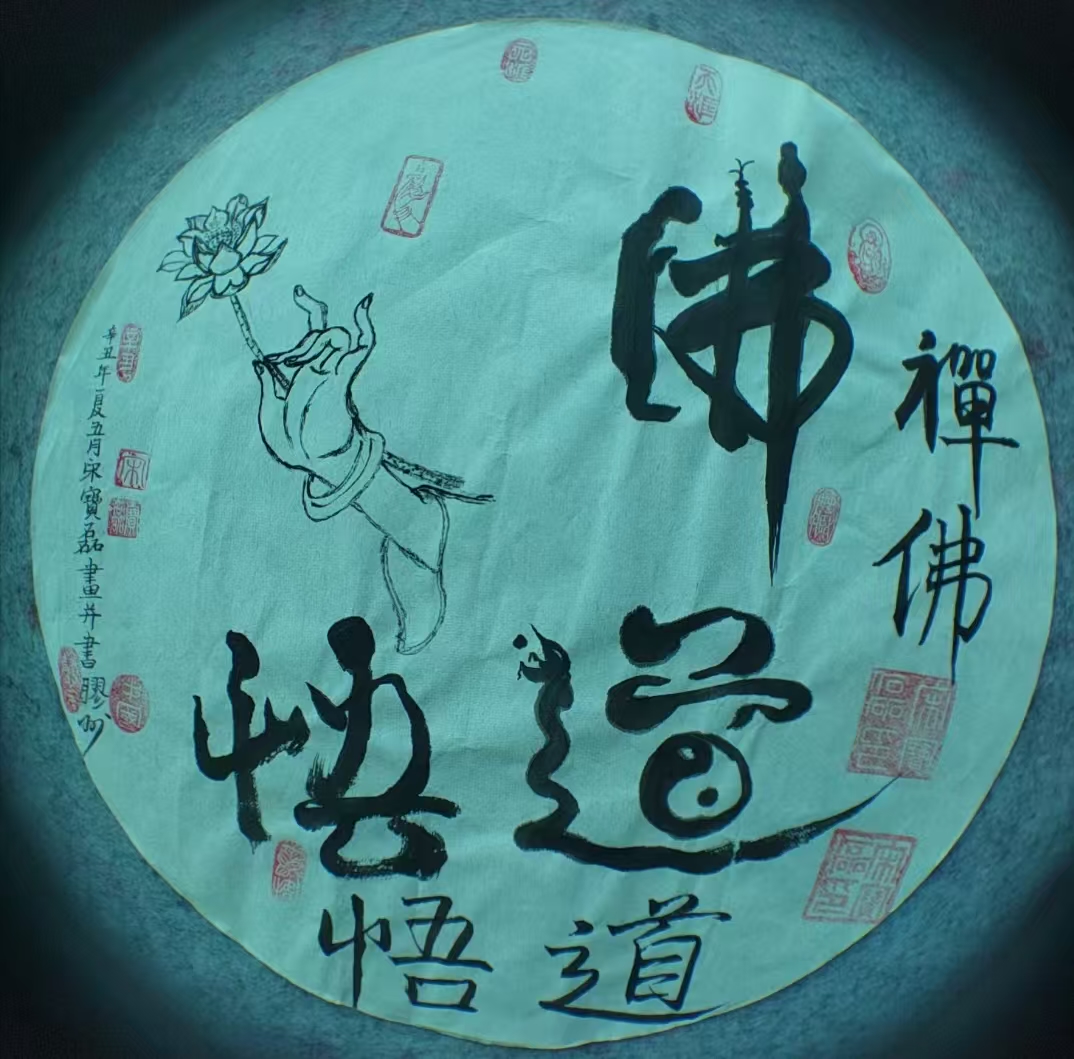 佛
禪佛
道
悟
悟道
辛丑年夏五月宋寶磊畫并書膠州